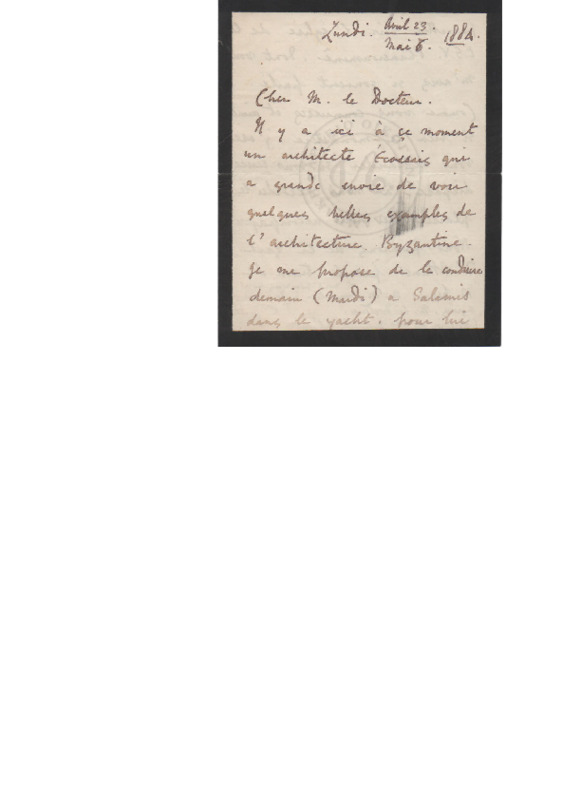 Lundi. Avril 23 / Mai 5. 1884.
Cher M. le Docteur.
Il y a ici à ce moment
un architecte Écossais qui
a grande envie de voir
quelques belles examples de
l'architecture Byzantine.
Je me propose de le conduire
demain (Mardi) a Salamis
dans le yacht. pour lui